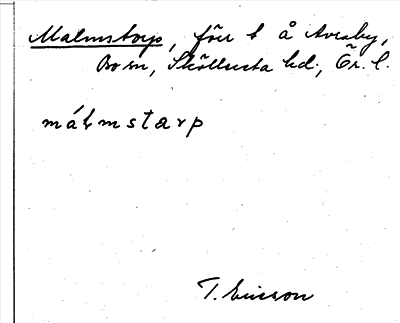 Malmstorp, förr t å Avesby,
Bo sn, Sköllersta hd., Ör. l.
málmstarp
T. Ericsson